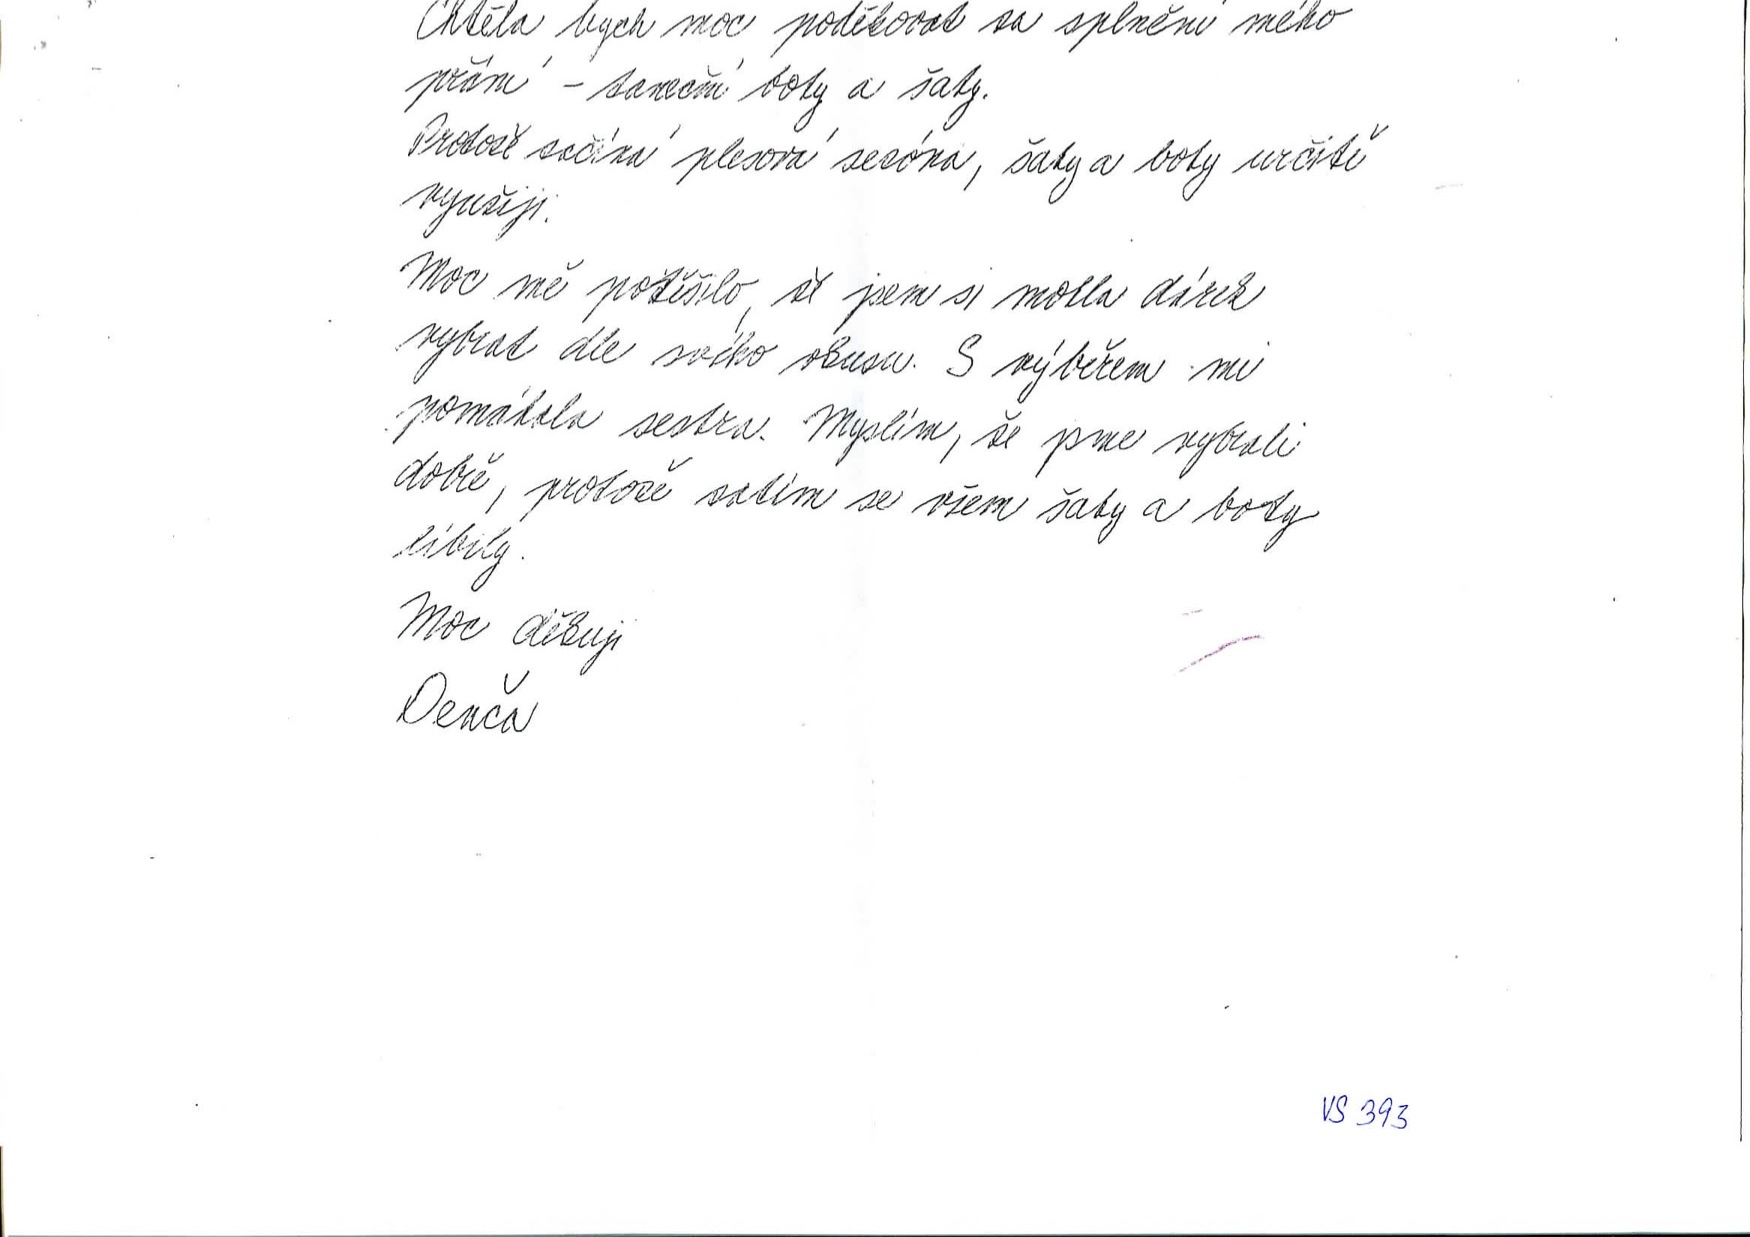 Chtěla bych moc poděkovat za splnění mého
přání – taneční boty a šaty.
Protože začíná plesová sezóna, šaty a boty určitě
využiji.
Moc mě potěšilo, že jsem si mohla dárek
vybrat dle svého vkusu. S výběrem mi
pomáhala sestra. Myslím, že jsme vybrali
dobře, protože zatím se všem šaty a boty
líbily.
Moc děkuji
Denča
VS 393